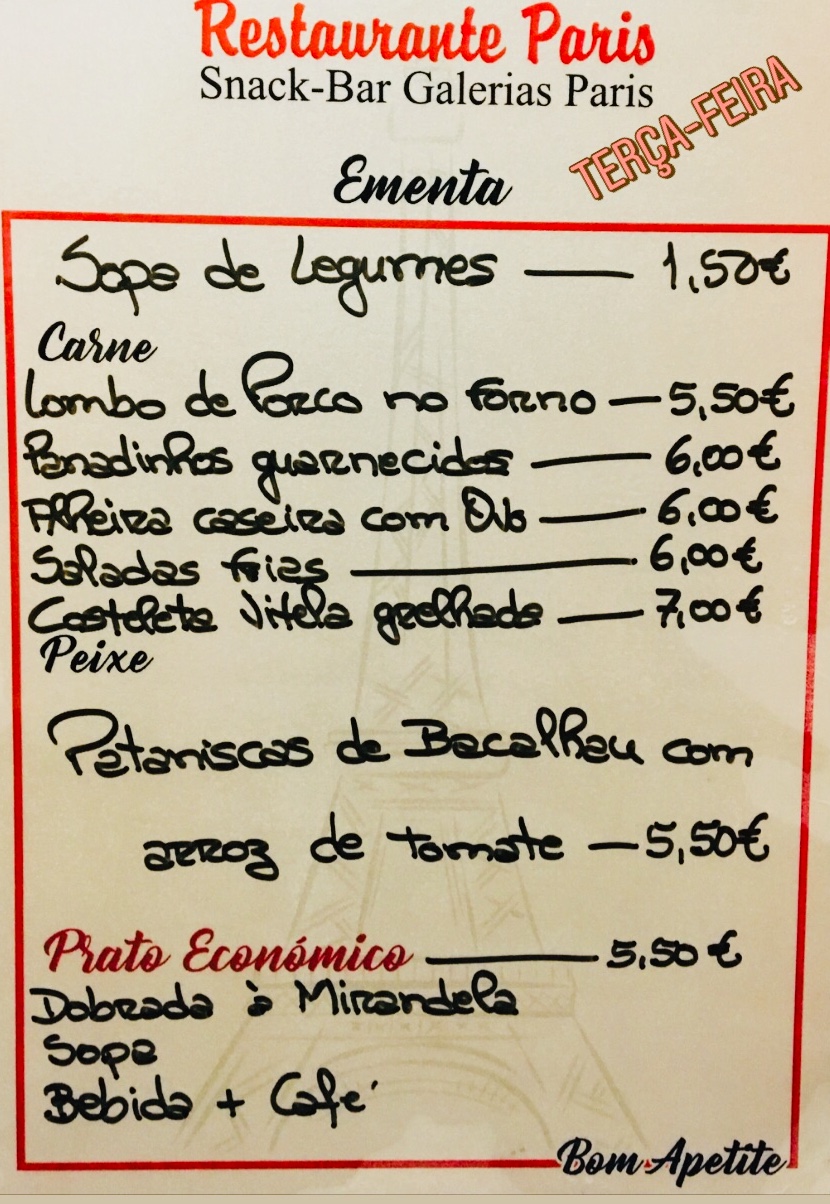 Restaurante Paris
Snack-Bar Galerias Paris
TERÇA-FEIRA
Ementa
Sopa de Legumes — 1,50€
Carne
Lombo de Porco no forno — 5,50€
Panadinhos guarnecidos — 6,00€
Alheira caseira com Ovo — 6,00€
Saladas frias — 6,00€
Costeleta Vitela grelhada — 7,00€
Peixe
Pataniscas de Bacalhau com
arroz de tomate — 5,50€
Prato Económico — 5,50€
Dobrada à Mirandela
Sopa
Bebida + Café
Bom Apetite